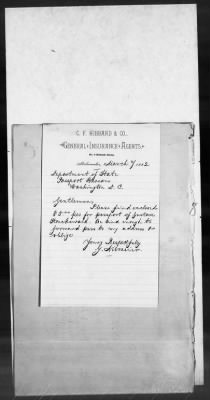 C. F. HIBBARD & CO.
GENERAL INSURANCE AGENTS.
Milwaukee, March 7 1882
Department of State
Passport Bureau
Washington D. C.
Gentlemen:
Please find enclosed
fee for passport of
Be kind enough to
forward pass to my address &
oblige
Yours Respectfully